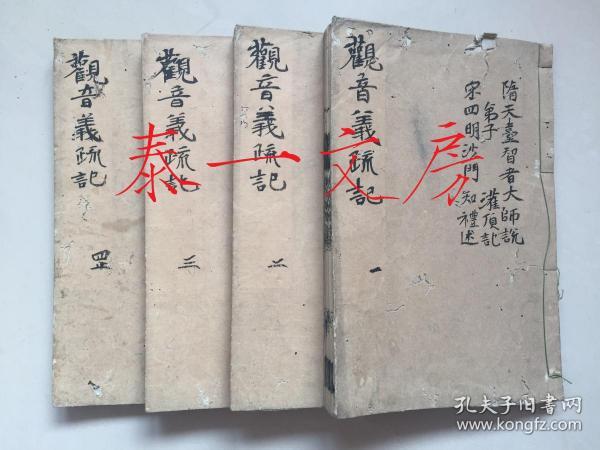 隋天臺智者大師說
弟子 灌頂記
宋四明沙門 知禮述
觀音義疏記
一
觀音義疏記
二
觀音義疏記
三
觀音義疏記
四
泰一文房
孔夫子旧書网
www.kongfz.com